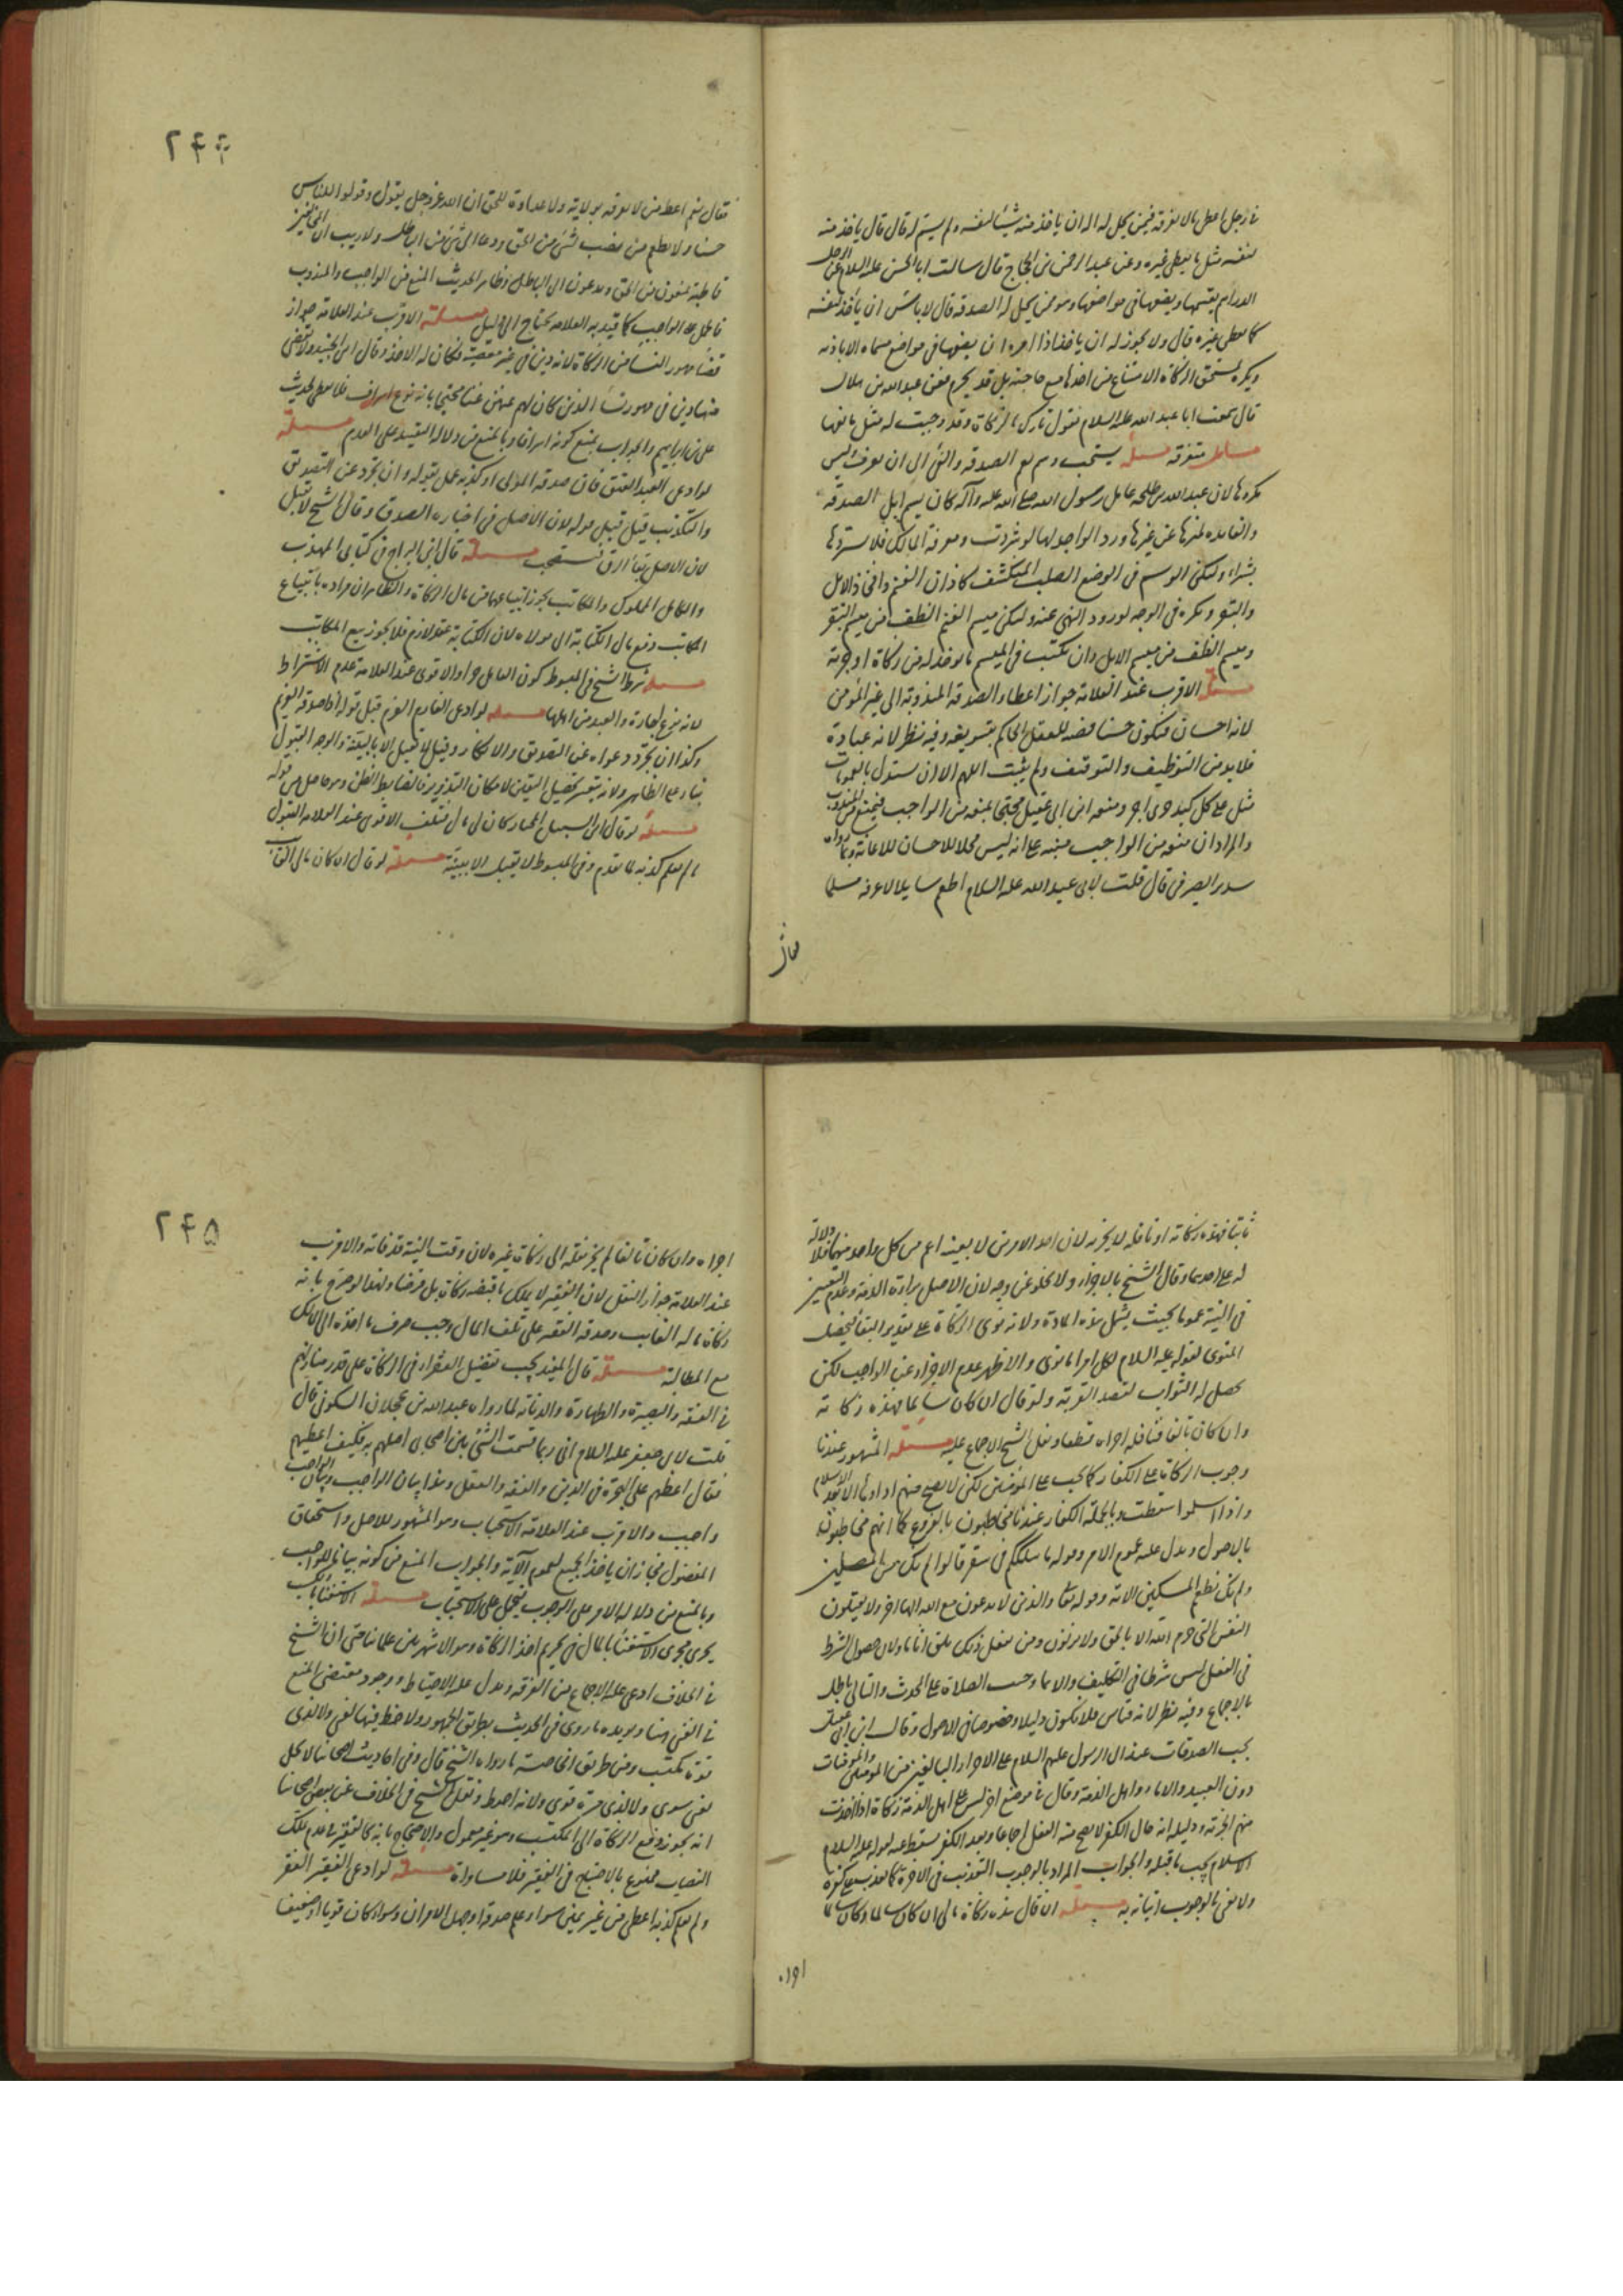 في رجل اعطى مالا يفرقه فيمن يحل له اله ان ياخذ منه شيئا لنفسه ولم يسم له قال قال ياخذ منه
لنفسه مثل ما يعطي غيره وعن عبد الرحمن بن الحجاج قال سالت ابا الحسن عليه السلام عن الرجل
الدراهم يقسمها ويضعها في مواضعها وهو ممن يحل له الصدقة قال لا باس ان يأخذ لنفسه
كما يعطي غيره قال ولا يجوز له ان ياخذ اذا امره ان يضعها في مواضع مسماه الا باذنه
ويكره لمستحق الزكاة الامتناع من اخذها مع حاجته بل قد يحرم فعن عبد الله بن هلال
قال سمعت ابا عبد الله عليه السلام يقول تارك الزكاة وقد وجبت له مثل مانعها
مسائل متفرقه مسئله يستحب وسم نعم الصدقه والفئ الى ان يعرف وليس
مكروها لان عبد الله بن طلحه عامل رسول الله صلى الله عليه وآله كان يسم ابل الصدقه
والفائده تميزها عن غيرها ورد الواجد لها لو شردت ومعرفة المالك فلا يستردها
بشراء وليكن الوسم في الموضع الصلب المنكشف كاذان الغنم وافخاذ الابل
والبقر ويكره في الوجه لورود النهي عنه وليكن ميسم الغنم الطف من ميسم البقر
وميسم الطف من ميسم الابل وان يكتب في الميسم ما يوخذ له من زكاة او جزية
مسئلة الاقرب عند العلامة جواز اعطاء الصدقه المندوبة الى غير المؤمن
لانه احسان فيكون حسنا قضيه للعقل الحاكم بتسويغه وفيه نظر لانه عبادة
فلا بد من التوظيف والتوقيف ولم يثبت اللهم الا ان يستدل بالعمومات
مثل على كل كبد حرى اجر ومنعه ابن ابي عقيل محتجا بمنعه من الواجب فيمنع من المندوب
والمراد ان منعه من الواجب منبه على انه ليس محلا للاحسان للاعانة وبما رواه
سدير الصيرفي قال قلت لابي عبد الله عليه السلام اطعم سايلا لا اعرفه مسلما
فقال
٢۴۴
فقال نعم اعط من لا تعرفه بولاية ولا عداوة للحق ان الله عز وجل يقول وقولوا للناس
حسنا ولا تطعم من نصب لشئ من الحق ودعا الى شئ من الباطل ولا ريب ان المخالفين
قاطبة يمنعون من الحق ويدعون الى الباطل وظاهر الحديث المنع من الواجب والمندوب
فالحمل على الواجب كما قيد به العلامه يحتاج الى دليل مسئلة الاقرب عند العلامة جواز
قضا مهور النسا من الزكاة لانه دين في غير معصية فكان له الاخذ وقال ابن الجنيد ولا تقضى
منها دين في مهور نسا الذين كان لهم عنهن غنا محتجا بانه نوع اسراف فلا يعطى لحديث
علي بن ابراهيم والجواب بمنع كونه اسرافا وبالمنع من دلالة التقييد على العدم مسئلة
لو ادعى العبد العتق فان صدقه المولى او كذبه عمل بقوله وان تجرد عن التصديق
والتكذيب قيل قبل قوله لان الاصل في اخباره الصدق وقال الشيخ لا يقبل
لان الاصل بقا الرق فيستصحب مسئلة قال ابن البراج في كتابي المهذب
والكامل المملوك والمكاتب يجوز ابتياعهما من مال الزكاة والظاهر ان مراده بابتياع
المكاتب دفع مال الكتابة الى مولاه لان الكتابة عقد لازم فلا يجوز بيع المكاتب
مسئله شرط الشيخ في المبسوط كون العامل حرا والاقوى عند العلامة عدم الاشتراط
لانه نوع اجارة والعبد من اهلها مسئله لو ادعى الغارم الغرم قبل قوله اذا صدقه الغريم
وكذا ان تجرد دعواه عن التصديق والانكار وقيل لا يقبل الا بالبينة والوجه القبول
بناء على الظاهر ولانه يتعسر تحصيل اليقين لامكان التزوير فالضابط الظن وهو حاصل من قوله
مسئله لو قال ابن السبيل المجتاز كان لي مال فتلف الاقوى عند العلامه القبول
ما لم يعلم كذبه لما تقدم وفي المبسوط لا يقبل الا ببينة مسئلة لو قال ان كان مالى الغائب
ثابتا فهذه زكاته او نافله لا يجزيه لان احد الامرين لا بعينه اعم من كل واحد منهما فلا دلالة
له على احدهما وقال الشيخ بالاجزاء ولا يخلو عن وجه لان الاصل براءة الذمة وعدم التعيين
في النية عموما بحيث يشمل هذه المادة ولانه نوى الزكاة على تقدير البقا فيحصل
المنوى لقوله عليه السلام لكل امرا ما نوى والاظهر عدم الاجزاء عن الواجب لكن
يحصل له الثواب لقصد القربة ولو قال ان كان سالما فهذه زكاته
وان كان تالفا فنافله اجزاه قطعا ونقل الشيخ الاجماع عليه مسئلة المشهور عندنا
وجوب الزكاة على الكفار كما يجب على المؤمنين لكن لا يصح منهم اداؤها الا بعد الاسلام
واذا اسلموا سقطت وبالجملة الكفار عندنا مخاطبون بالفروع كما انهم مخاطبون
بالاصول ويدل عليه عموم الامر وقوله ما سلككم في سقر قالوا لم نك من المصلين
ولم نك نطعم المسكين الاية وقوله تعا والذين لا يدعون مع الله الها اخر ولا يقتلون
النفس التي حرم الله الا بالحق ولا يزنون ومن يفعل ذلك يلق اثاما ولان حصول الشرط
في الفعل ليس شرطا في التكليف والا لما وجبت الصلاة على المحدث والتالي باطل
بالاجماع وفيه نظر لانه قياس فلا يكون دليلا وخصوصا في الاصول وقال ابن ابي عقيل
يجب الصدقات عند ال الرسول عليهم السلام على الاحرار البالغين من المؤمنين والمؤمنات
دون العبيد والاماء واهل الذمة وقال في موضع اخر ليس على اهل الذمة زكاة اذا اخذت
منهم الجزية ودليله انه حال الكفر لا يصح منه الفعل اجماعا وبعد الكفر يسقط عنه لقوله عليه السلام
الاسلام يجب ما قبله والجواب المراد بالوجوب التعذيب في الاخرة كما يعذب مع كفره
ولا نعني بالوجوب اتيانه به مسئلة ان قال هذه زكاة مالى ان كان سالما وكان سالما
اجزاه
٢۴۵
اجزاه وان كان تالفا لم يجز نقله الى زكاة غيره لان وقت النية قد فاته والاقرب
عند العلامة جواز النقل لان الفقير لا يملك ما قبضه زكاة بل قرضا ولهذا لو صرح بانه
زكاة ماله الغايب وصدقه الفقير على تلف المال وجب صرف ما اخذه الى المالك
مع المطالبة مسئلة قال المفيد يجب تفضيل الفقراء في الزكاة على قدر منازلهم
في الفقه والبصيرة والطهارة والديانة لما رواه عبد الله بن عجلان السكوني قال
قلت لابي جعفر عليه السلام اني ربما قسمت الشئ بين اصحابي اصلهم به فكيف اعطيهم
فقال اعطهم على الهجرة في الدين والفقه والعقل وهذا بيان الواجب وبيان الواجب
واجب والاقرب عند العلامة الاستحباب وهو المشهور للاصل واستحقاق
المفضول فجاز ان ياخذ الجميع لعموم الآية والجواب المنع من كونه بيانا للواجب
وبالمنع من دلالة الامر على الوجوب فيحمل على الاستحباب مسئلة الاستغنا بالكسب
يجري مجرى الاستغنا بالمال في تحريم اخذ الزكاة وهو الاشهر بين علمائنا حتى ان الشيخ
في الخلاف ادعى عليه الاجماع بين الفرقه ويدل عليه الاحتياط ووجود مقتضى المنع
في الغنى هنا ويؤيده ما روى في الحديث بطريق الجمهور ولا حظ فيها لغني ولا لذي
قوة مكتسب ومن طريق الخاصة ما رواه الشيخ قال وفي احاديث اصحابنا لا تحل
لغني سوى ولا لذي مرة قوى ولانه احوط ونقل الشيخ في الخلاف عن بعض اصحابنا
انه يجوز دفع الزكاة الى المكتسب وهو غير معمول والاحتجاج بانه كالفقير في عدم ملك
النصاب ممنوع بالاحتياج في الفقير فلا مساواة مسئلة لو ادعى الفقير الفقر
ولم يعلم كذبه اعطى من غير يمين سواء علم صدقه او جهل الامران وسواء كان قويا او ضعيفا